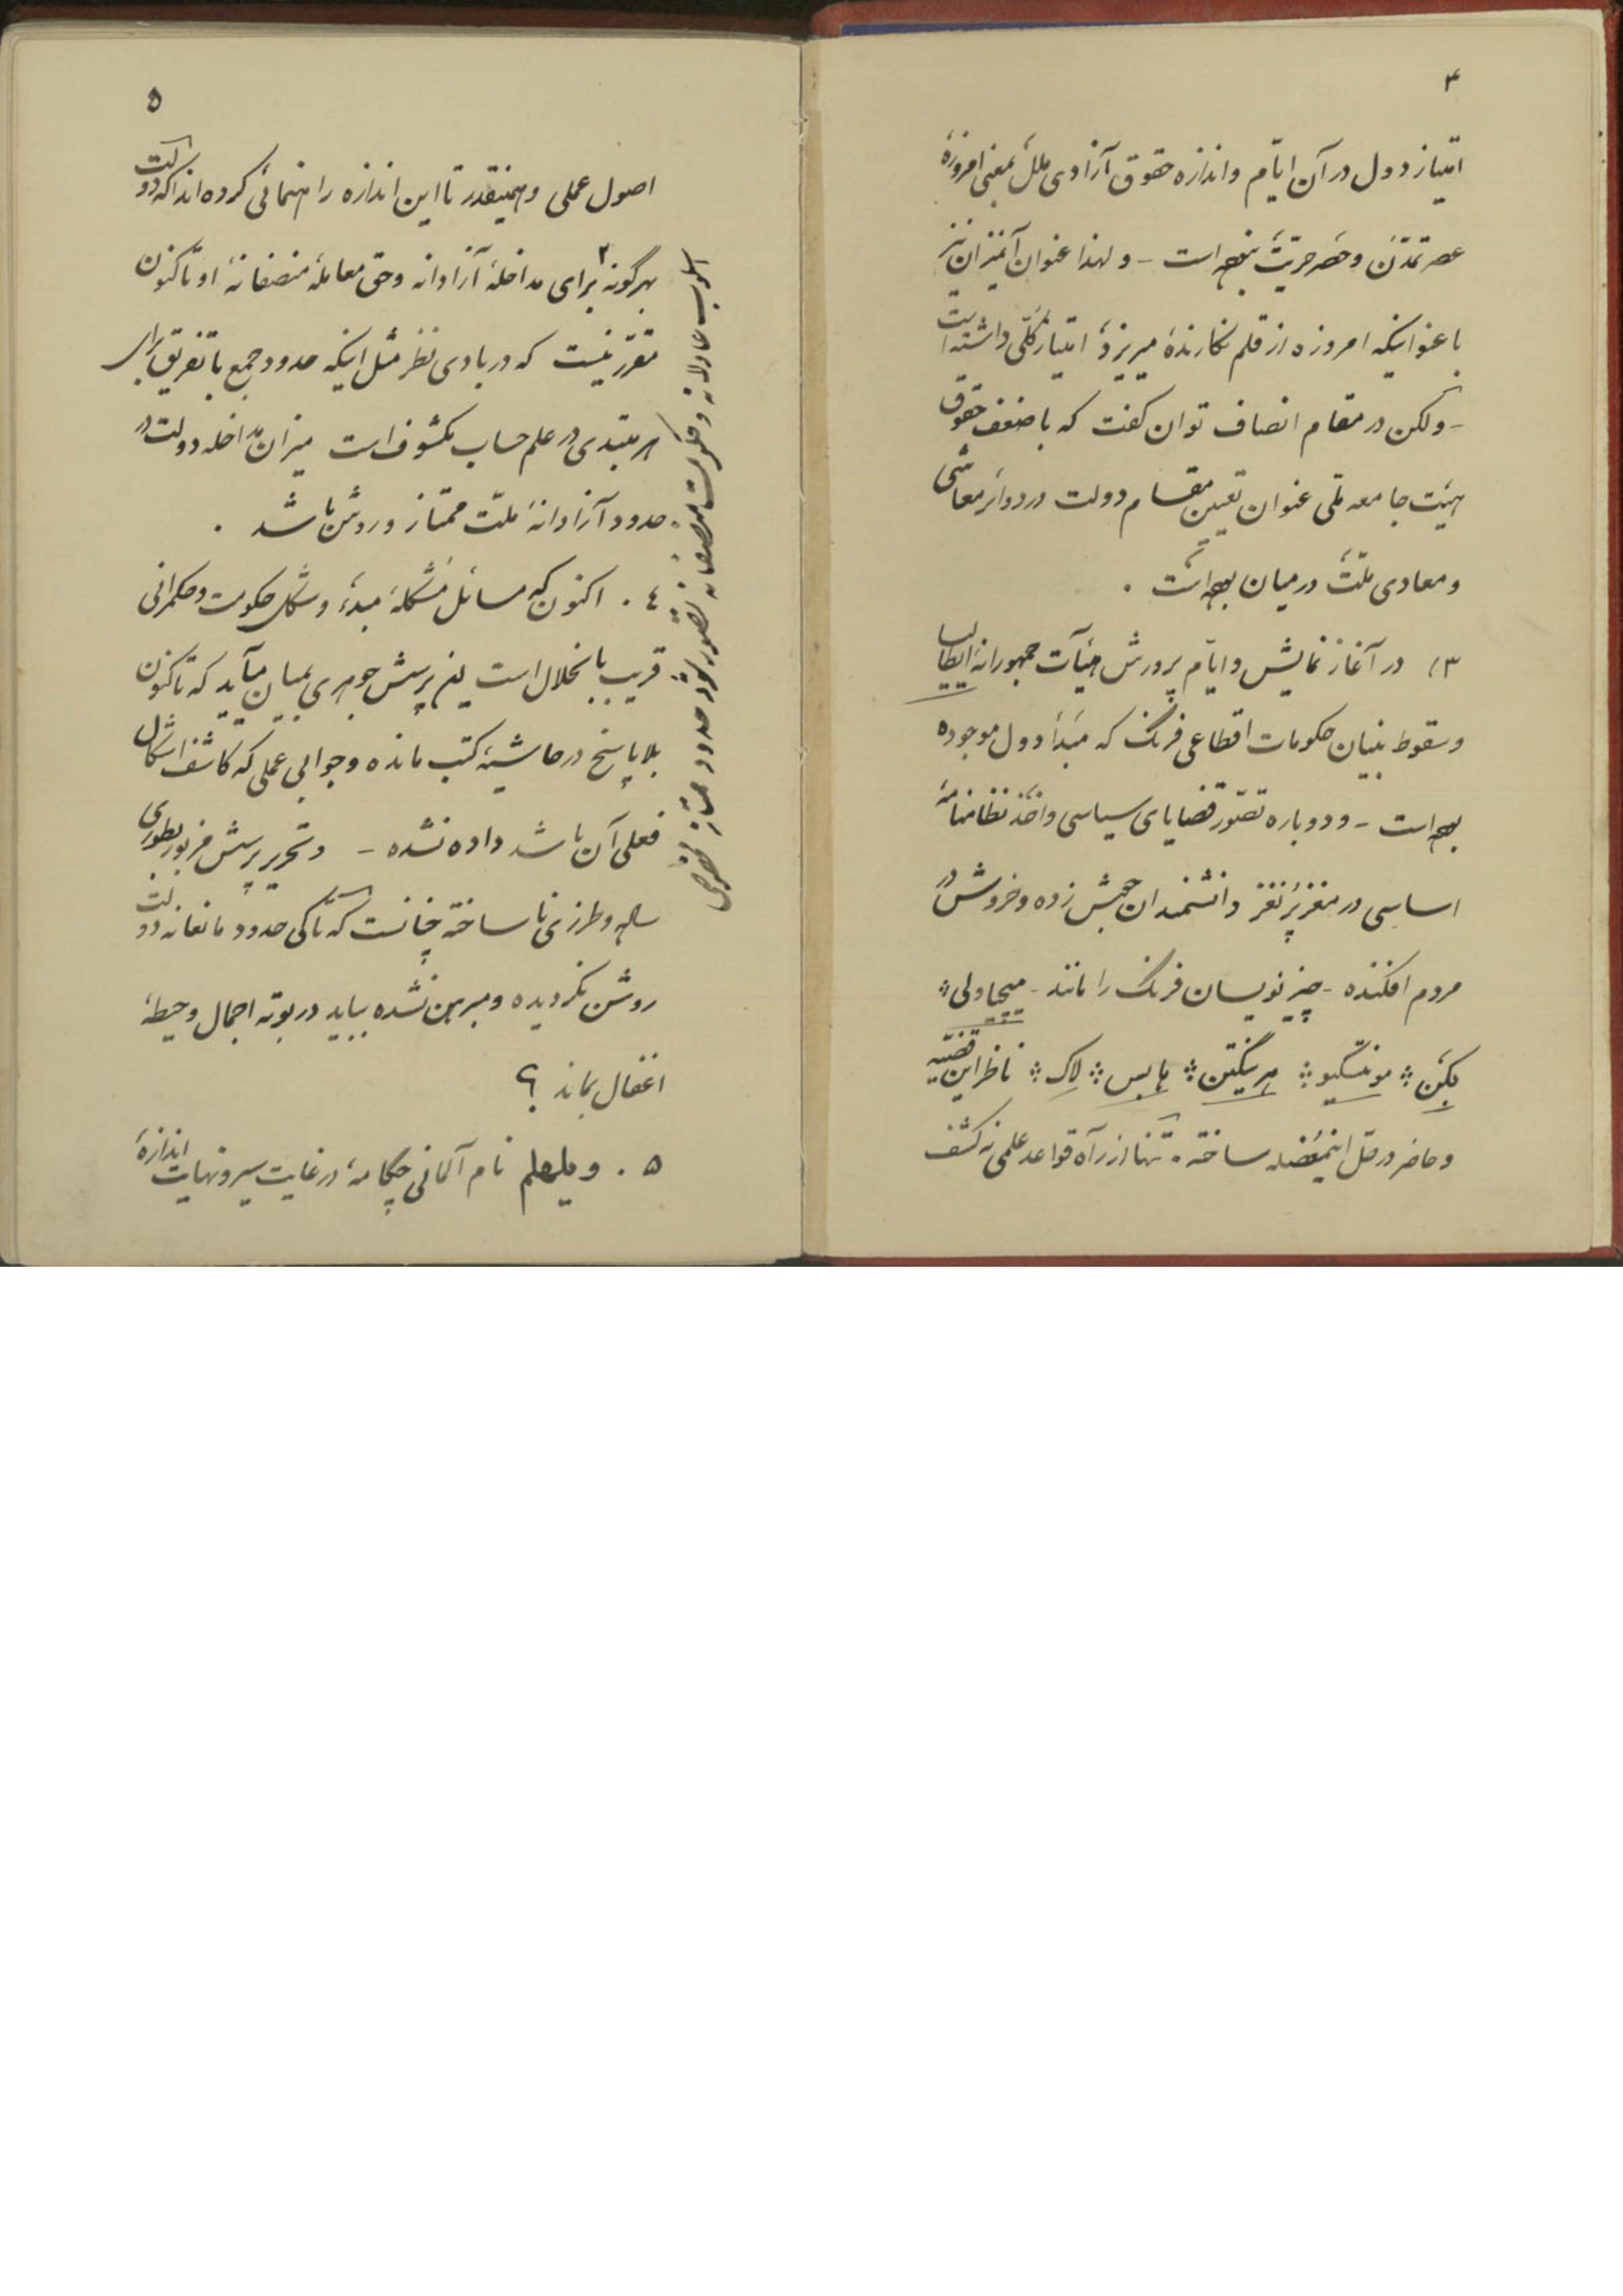 ۴
امتیاز دول در آن ایّام و اندازه حقوق آزادی ملل بمعنی امروزهٔ
عصر تمدّن و حَصر حرّیّت نبوده است - و لهذا عنوان آنمیزان نیز
با عنوانیکه امروزه از قلم نگارنده میریزد امتیاز کلّی داشته است
- ولکن در مقام انصاف توان گفت که با ضعف حقوق
هیئت جامعه ملّی عنوان تعیین مقام دولت در دوائر معاشی
و معادی ملّت در میان بوده است .
۳) در آغاز نمایش و ایّام پرورش هیآت جمهورانهٔ ایطالیا
و سقوط بنیان حکومات اقطاعی فرنگ که مَبدأ دول موجوده
بوده است - و دوباره تصوّر قضایای سیاسی و اخذ نظامنامهٔ
اساسی در مغز پُر نغز دانشمندان جنبش زده و خروش در
مردم افکنده - چیز نویسان فرنگ را مانند - میچیاولی ؞
بکِن ؞ مونتسکیو ؞ هرینگتن ؞ هابس ؞ لاک ؞ ناظر این قضیّه
و حاضر در حلّ اینمُعضله ساخته . تنها از راه قواعد علمی نه کشف
۵
اصول عملی و همینقدر تا این اندازه راهنمائی کرده‌اند که دولت
بهرگونه ۲ برای مداخلهٔ آزادانه و حق معاملهٔ منصفانهٔ او تاکنون
مقرّر نیست که در بادی نظر مثل اینکه حدود جمع با تفریق برای
هر مبتدی در علم حساب مکشوف است میزان مداخله دولت در
حدود آزادانهٔ ملّت ممتاز و روشن باشد .
٤ . اکنون که مسائل مُشکلهٔ مبدء و شکل حکومت و حکمرانی
قریب بانحلال است این پرسش جوهری بمیان میآید که تاکنون
بلا پاسخ در حاشیهٔ کتب مانده و جوابی عملی که کاشف اشکال
فعلی آن باشد داده نشده - و تحریر پرسش مزبور بطوری
ساده و طرزی نا ساخته چنانست که تا کی حدود مانعانه دولت
روشن نگردیده و مبرهن نشده بباید در بوتهٔ اجمال و حیطهٔ
اغفال بماند ؟
۵ . ویلهلم نام آلمانی چکامهٔ در غایت سیر و نهایت اندازهٔ
اسلوب عادلانه و حکومت منصفانه تصور نمود حدود ممتاز